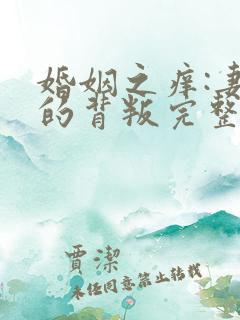 婚姻之痒:妻
的背叛完整
賈潔
未经同意禁止转载